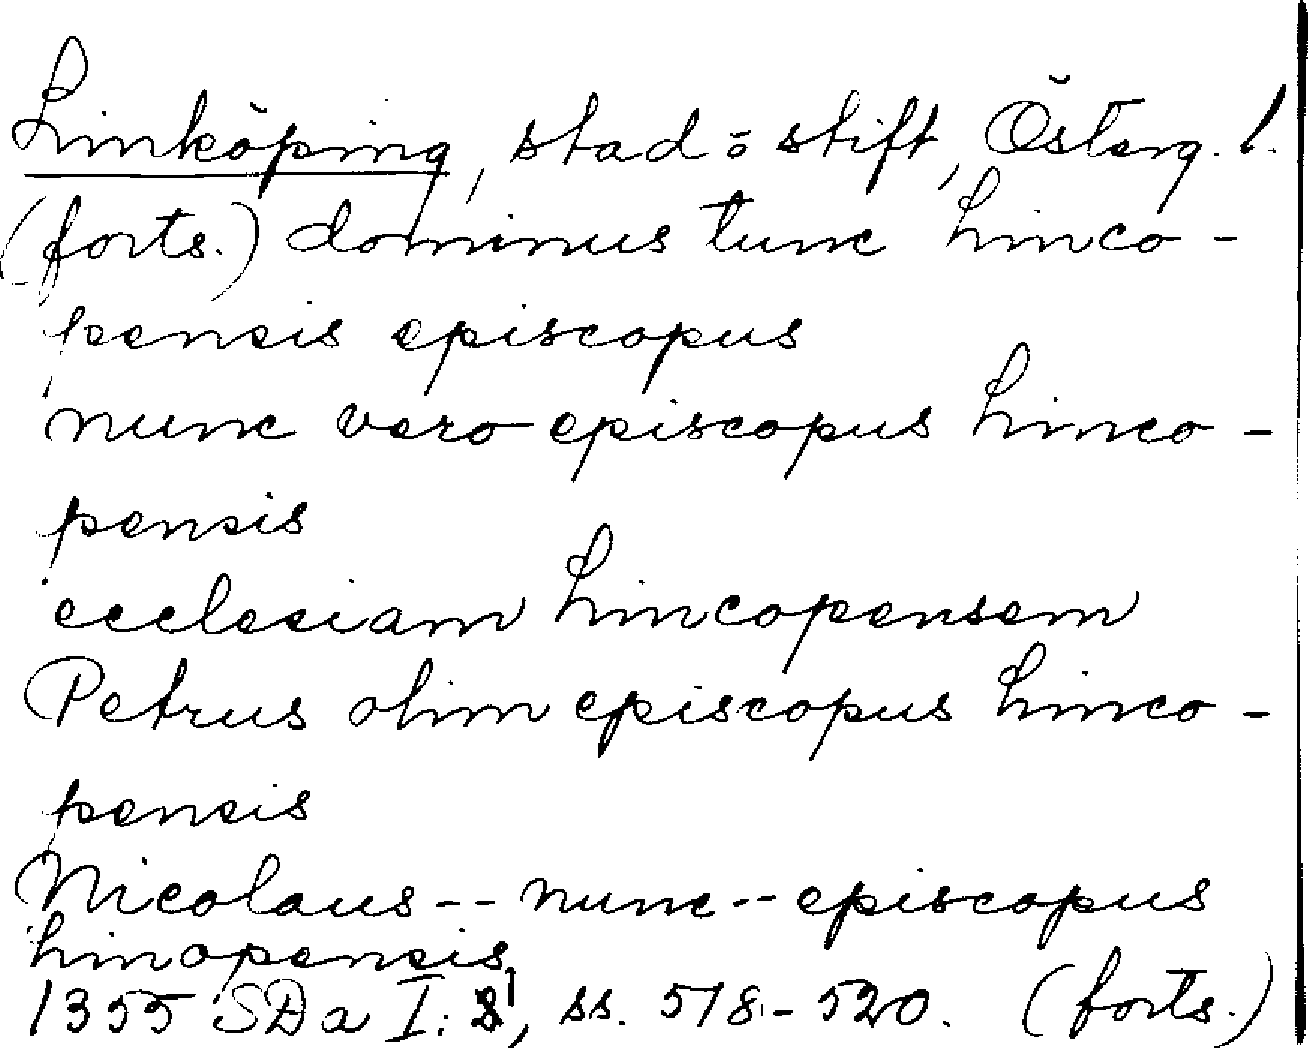 Linköping, stad ö stift, Österg. l.
(forts.) dominus tunc Linco-
pensis episcopus
nunc vero episcopus Linco-
pensis
ecclesiam Lincopensem
Petrus olim episcopus Linco-
pensis
Nicolaus -- nunc -- episcopus
Linopensis
1355 SDa I: 1, ss. 518-520. (forts.)